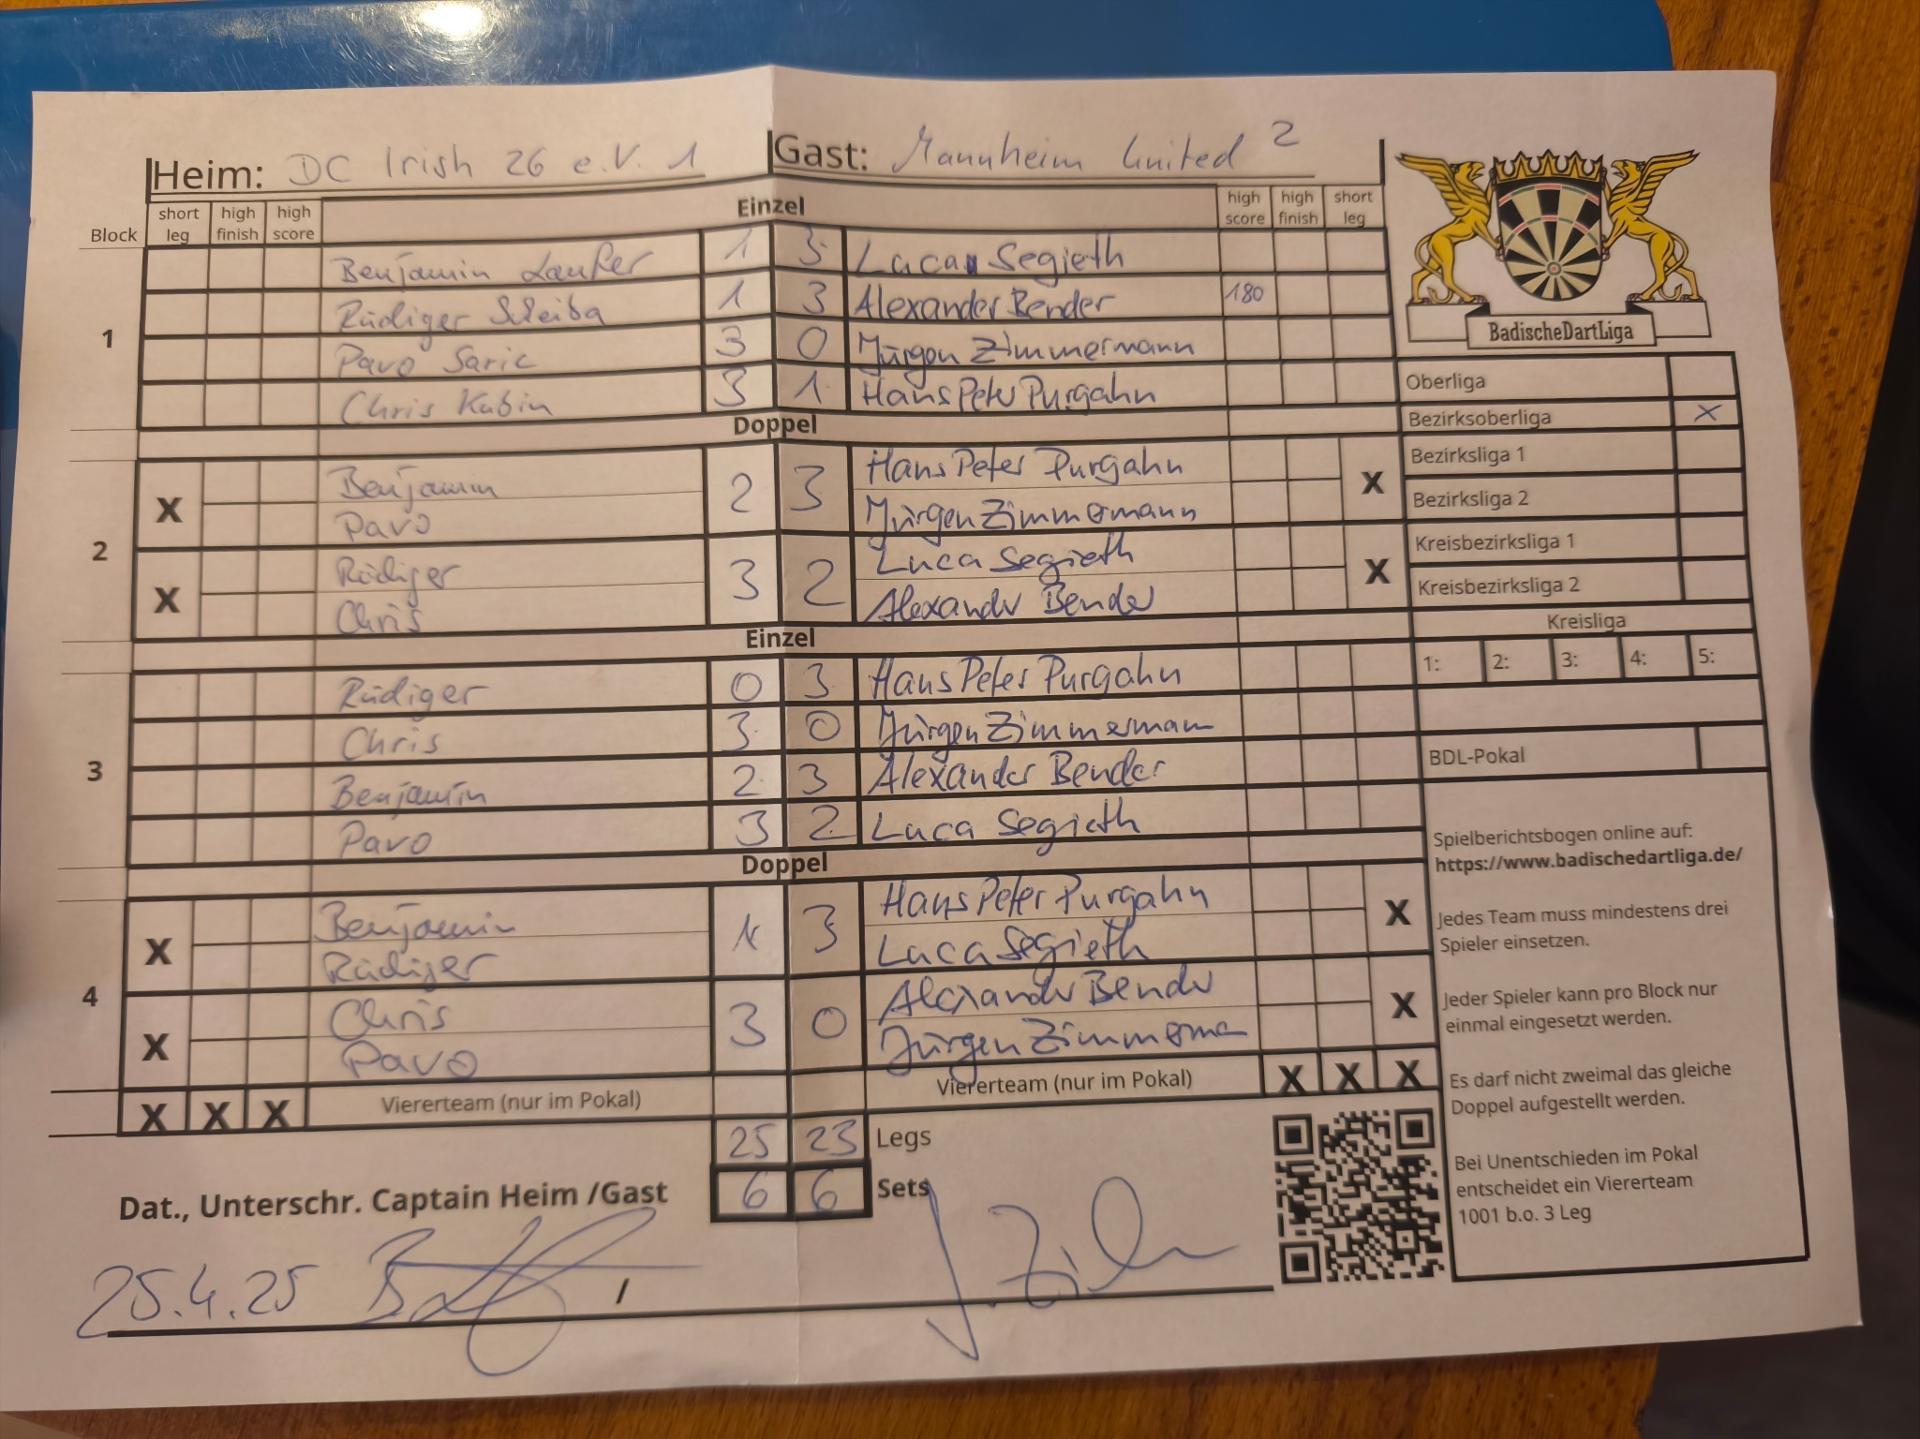 Heim: DC Irish 26 e.V. 1 Gast: Mannheim United 2
Einzel
Block short leg high finish high score high score high finish short leg
1
Benjamin Laufer 1 3 Luca Segieth
Rüdiger Scheiba 1 3 Alexander Bender 180
Pavo Saric 3 0 Jürgen Zimmermann
Chris Kubin 3 1 Hans Peter Purgahn
Doppel
2
X Benjamin 2 3 Hans Peter Purgahn X
Pavo Jürgen Zimmermann
X Rüdiger 3 2 Luca Segieth X
Chris Alexander Bender
Einzel
3
Rüdiger 0 3 Hans Peter Purgahn
Chris 3 0 Jürgen Zimmermann
Benjamin 2 3 Alexander Bender
Pavo 3 2 Luca Segieth
Doppel
4
X Benjamin 1 3 Hans Peter Purgahn X
Rüdiger Luca Segieth
X Chris 3 0 Alexander Bender X
Pavo Jürgen Zimmerma
X X X Viererteam (nur im Pokal) Viererteam (nur im Pokal) X X X
25 23 Legs
6 6 Sets
Dat., Unterschr. Captain Heim /Gast
25.4.25 /
BadischeDartLiga
Oberliga
Bezirksoberliga X
Bezirksliga 1
Bezirksliga 2
Kreisbezirksliga 1
Kreisbezirksliga 2
Kreisliga
1: 2: 3: 4: 5:
BDL-Pokal
Spielberichtsbogen online auf:
https://www.badischedartliga.de/
Jedes Team muss mindestens drei
Spieler einsetzen.
Jeder Spieler kann pro Block nur
einmal eingesetzt werden.
Es darf nicht zweimal das gleiche
Doppel aufgestellt werden.
Bei Unentschieden im Pokal
entscheidet ein Viererteam
1001 b.o. 3 Leg